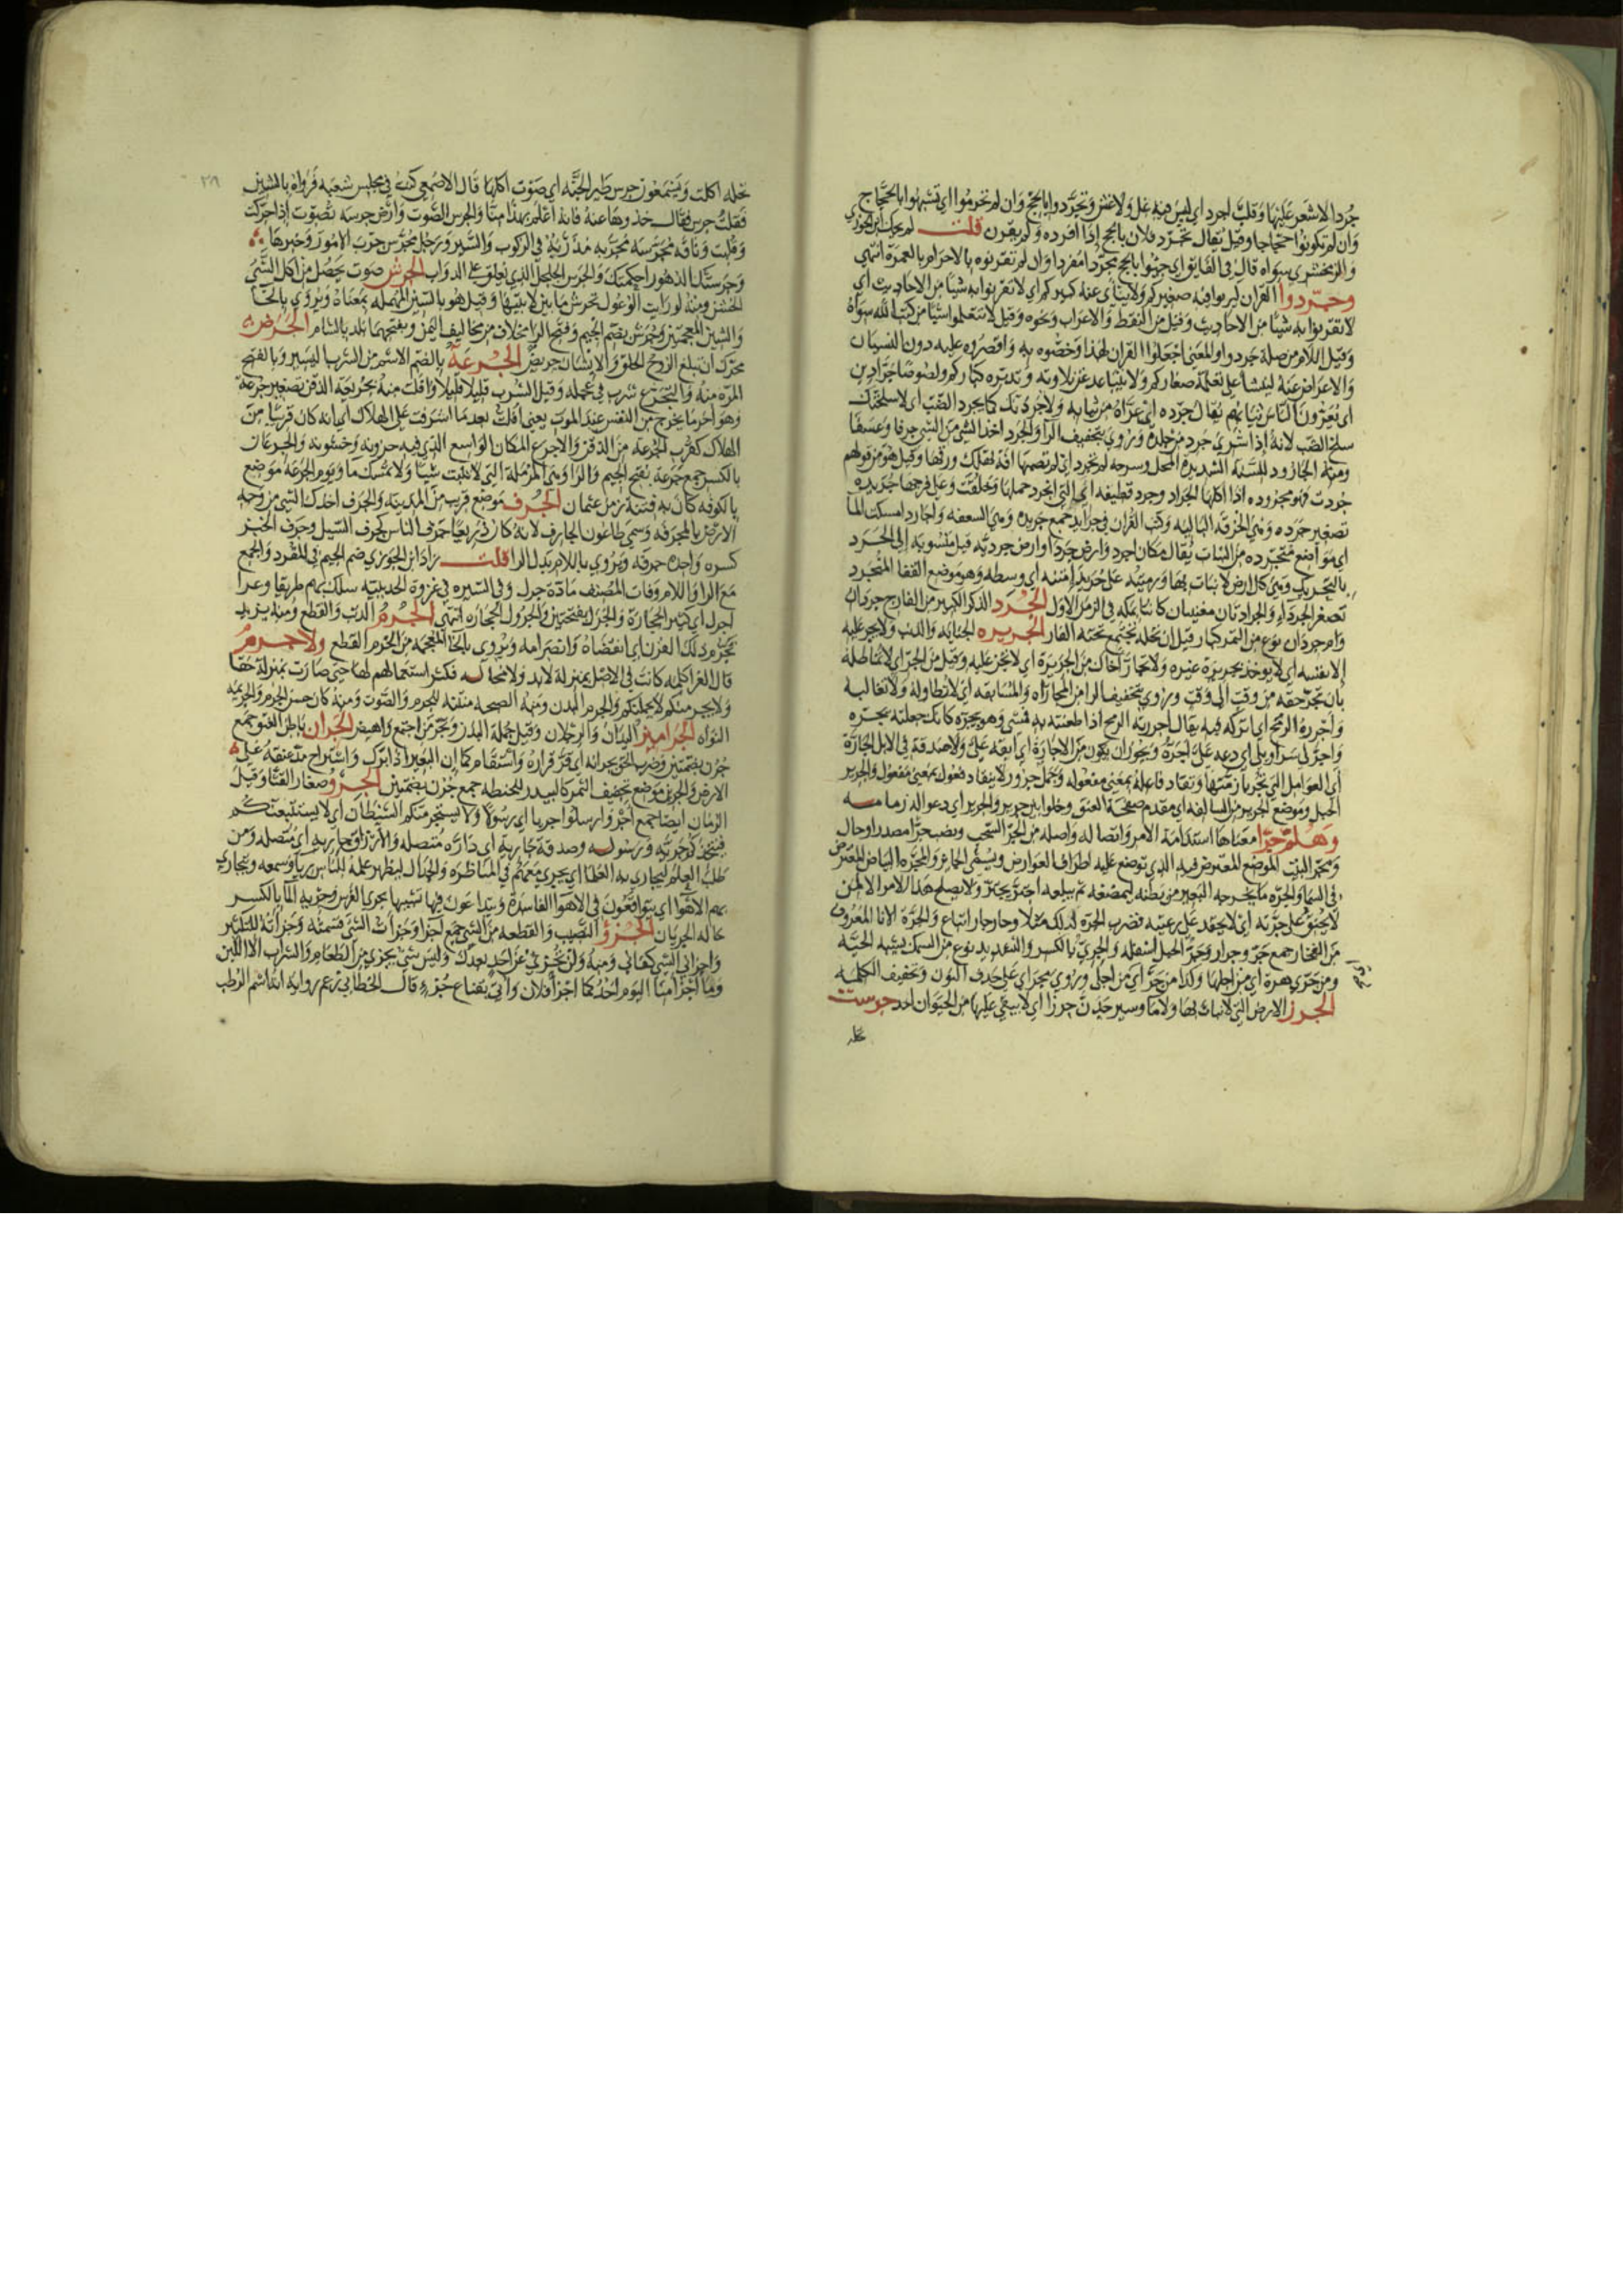 جرد الاشعر عليها وقلب اجرد اي ليس فيه غل ولا غش وتجردوا بالحج وان لم تحرموا اي تشبهوا بالحجاج
وان لم تكونوا حجاجا وقيل يقال تجرد فلان بالحج اذا افرده ولم يقرن قلت لم يحك ابن الجوزي
والزمخشري سواه قال في الفايق اي جيئوا بالحج مجردا مفردا وان لم تقرنوه بالاحرام بالعمرة انتهى
وجردوا القران ليربو فيه صغيركم ولا ينأى عنه كبيركم اي لا تقرنوا به شيئا من الاحاديث اي
لا تقرنوا به شيئا من الاحاديث وقيل من النقط والاعراب ونحوه وقيل لا تتعلموا شيئا من كتب الله سواه
وقيل اللام من صلة جردوا والمعنى اجعلوا القران لهذا وخصوه به واقصروه عليه دون النسيان
والاعراض عنه لينشأ على تعلمه صغاركم ولا يتباعد عن تلاوته وتدبره كباركم ولصوصا جرادين
اي يعرون الناس ثيابهم يقال جرده اي عراه من ثيابه ولاجردنك كما يجرد الضب اي لاسلخنك
سلخ الضب لانه اذا شوي جرد من جلده وروي بتخفيف الرا والجرد اخذ الشي من الشي جرفا وعسفا
ومنه الجارود للسنة الشديدة المحل وسرحه لم تجرد اي لم تصبها افة تهلك ورقها وقيل هو من قولهم
جردت فهو مجروده اذا اكلها الجراد وجرد قطيفه اي التي انجرد حملها وخلقت وعلى فرجها جريده
تصغير جرده وهي الخرقه الباليه وكتب القران في جرايد جمع جريده وهي السعفه واجارد امسكت الما
اي مواضع متجرده من النبات يقال مكان اجرد وارض جردا وارض جرديه قيل منسوبه الى الجرد
بالتحريك وهي كل ارض لا نبات بها ورميته على جريدا متنه اي وسطه وهو موضع القفا المتجرد
تصغير الجرداء والجرادتان مغنيتان كانتا بمكه في الزمن الاول الجرد الذكر الكبير من الفار ج جرذان
وام جرذان نوع من التمر كبار قيل ان نخله يجتمع تحته الفار الجريره الجنايه والذنب ولا يجر عليه
الا نفسه اي لا يوخذ بجريرة غيره ولا تجار اخاك من الجريرة اي لا تجن عليه وقيل من الجر اي لا تماطله
بان تجر حقه من وقت الى وقت وروي بتخفيف الرا من المجاراه والمسابقه اي لا تطاوله ولا تغالبه
واجرره الرمح اي اتركه فيه يقال اجررته الرمح اذا طعنته به فمشى وهو يجره كانك جعلته يجره
واجر لي سراويلي اي دعه علي اجره ويجوز ان يكون من الاجارة اي ابقه علي ولا صدقة في الابل الجارة
اي العوامل التي تجر بازمتها وتقاد فاعله بمعنى مفعوله وجمل جرور لا ينقاد فعول بمعنى مفعول والجرير
الحبل وموضع الجرير من السالفه اي مقدم صفحة العنق وخلوا بين جرير والجرير اي دعوا له زمامه
وهلم جرا معناها استدامة الامر واتصاله واصله من الجر السحب ونصب جرا مصدر او حال
ومجر البيت الموضع المعترض فيه الذي توضع عليه اطراف العوارض ويسمى الجائز والمجرة البياض المعترض
في السما والجره ما يخرجه البعير من بطنه ليمضغه ثم يبلعه اجتر يجتر ولا يصلح هذا الامر الا لمن
لا يحنق على جرته اي لا يحقد على رعيته فضرب الجره لذلك مثلا وحار جار اتباع والجرة الانا المعروف
من الفخار جمع جر وجرار وجر الجبل اسفله والجري بالكسر والتشديد نوع من السمك يشبه الحيه
ومن جرى هرة اي من اجلها ولذا من جرا اي من اجل وروي مجراي على حذف النون وتخفيف الكلمه
الجرز الارض التي لا نبات بها ولا ما وسير حتى جرزا اي لا يبقى عليها من الحيوان احد جرست
نحله
٢٨٩
نحله اكلت ويسمعون جرس طير الجنه اي صوت اكلها قال الاصمعي كنت في مجلس شعبه فرواه بالشين
فقلت جرس فقال خذوها عنه فانه اعلم بهذا منا والجرس الصوت وارض جرسه تصوت اذا حركت
وقلبت وناقه مجرسة مجربه مدربة في الركوب والسير ورجل مجرس جرب الامور وخبرها
وجرستك الدهور احكمتك والجرس الجلجل الذي يعلق على الدواب الجرش صوت يحصل من اكل الشي
الخشن ومنه لو رايت الوعول تجرش ما بين لابتيها وقيل هو بالسين المهمله بمعناه ويروي بالخا
والشين المعجمتين وجرش بضم الجيم وفتح الرا مخلاف من مخاليف اليمن وبفتحهما بلد بالشام الجرض
محرك ان تبلغ الروح الحلق والانسان جريض الجرعة بالضم الاسم من الشرب اليسير وبالفتح
المرة منه والتجرع شرب في عجله وقيل الشرب قليلا قليلا وافلت منه بجريعة الذقن تصغير جرعة
وهو اخر ما يخرج من النفس عند الموت يعني افلت بعد ما اشرفت على الهلاك اي انه كان قريبا من
الهلاك كقرب الجرعة من الذقن والاجرع المكان الواسع الذي فيه حزونه وخشونه والجرعان
بالكسر جمع جرعة بفتح الجيم والرا وهي الرملة التي لا تنبت شيئا ولا تمسك ما ويوم الجرعة موضع
بالكوفه كان به فتنة زمن عثمان الجرف موضع قريب من المدينه والجرف اخذك الشي من وجه
الارض بالمجرفه وسمي طاعون الجارف لانه كان ذريعا جرف الناس كجرف السيل وجرف الخبز
كسره واحده جرفه ويروي باللام بدل الرا قلت زاد ابن الجوزي ضم الجيم في المفرد والجمع
مع الرا واللام وفات المصنف مادة جرل وفي السيره في غزوة الحديبيه سلك بهم طريقا وعرا
اجرل اي كثير الحجارة والجرل بفتحتين والجرول الحجاره انتهى الجرم الذنب والقطع ومنه يريد
تجرم ذلك القرن اي انقضاه وانصرامه ويروي بالخا المعجمه من الخرم القطع ولا جرم
قال الفرا كلمه كانت في الاصل بمنزلة لابد ولا محاله فكثر استعمالهم لها حتى صارت بمنزلة حقا
ولا يجرمنكم لا يحملنكم والجرم البدن ومنه الصحيه متنة للجرم والصوت ومنه كان حسن الجرم والجريمه
النواه الجراميز اليدان والرجلان وقيل جملة البدن وتجرمز اجتمع وانقبض الجران باطن العنق جمع
جرن بضمتين وضرب الحق بجرانه اي قر قراره واستقام كما ان البعير اذا برك واستراح مد عنقه على
الارض والجرين موضع تجفيف التمر كالبيدر للحنطه جمع جرن بضمتين الجرو صغار القثا وقيل
الرمان ايضا جمع اجر وارسلوا جريا اي رسولا ولا يستجرينكم الشيطان اي لا يستتبعنكم
فيتخذكم جريه ورسوله وصدقة جاريه اي دارة متصله والارزاق جاريه اي متصله ومن
طلب العلم ليجاري به العلما اي يجري معهم في المناظرة والجدال ليظهر علمه للناس رياء وسمعه وتتجارى
بهم الاهوا اي يتواقعون في الاهوا الفاسدة ويتداعون فيها تشبيها بجري الفرس وجرية الما بالكسر
حاله الجريان الجزؤ النصيب والقطعه من الشي جمع اجزا وجزات الشي قسمته وجزأته للتكثير
واجزاني الشي كفاني ومنه ولن تجزي عن احد بعدك وليس شي يجزي من الطعام والشراب الا اللبن
وما اجزا منا اليوم احد كما اجزا فلان واتي بقناع جزء قال الخطابي زعم روايه انه اسم الرطب